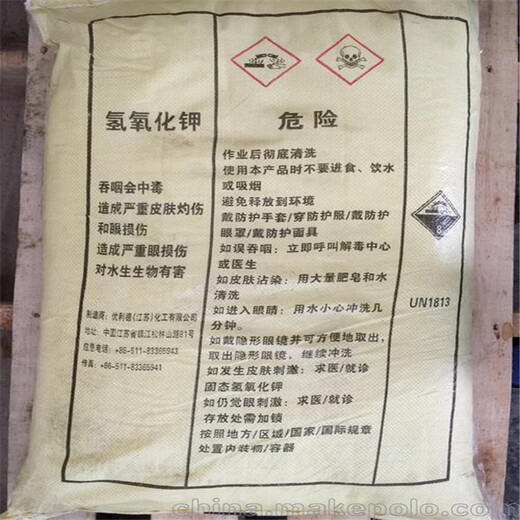 氢氧化钾
吞咽会中毒
造成严重皮肤灼伤
和眼损伤
造成严重眼损伤
对水生生物有害
制造商：优利德(江苏)化工有限公司
地址：中国江苏省镇江松林山路81号
应急电话：+86-511-83365943
传真：+86-511-83365941
危险
作业后彻底清洗
使用本产品时不要进食、饮水
或吸烟
避免释放到环境
戴防护手套/穿防护服/戴防护
眼罩/戴防护面具
如误吞咽：立即呼叫解毒中心
或医生
如皮肤沾染：用大量肥皂和水
清洗
如进入眼睛：用水小心冲洗几
分钟。
如戴隐形眼镜并可方便地取出，
取出隐形眼镜，继续冲洗
如发生皮肤刺激：求医/就诊
固态氢氧化钾
如仍觉眼刺激：求医/就诊
存放处需加锁
按照地方/区域/国家/国际规章
处置内装物/容器
8
UN1813
china.makepolo.com